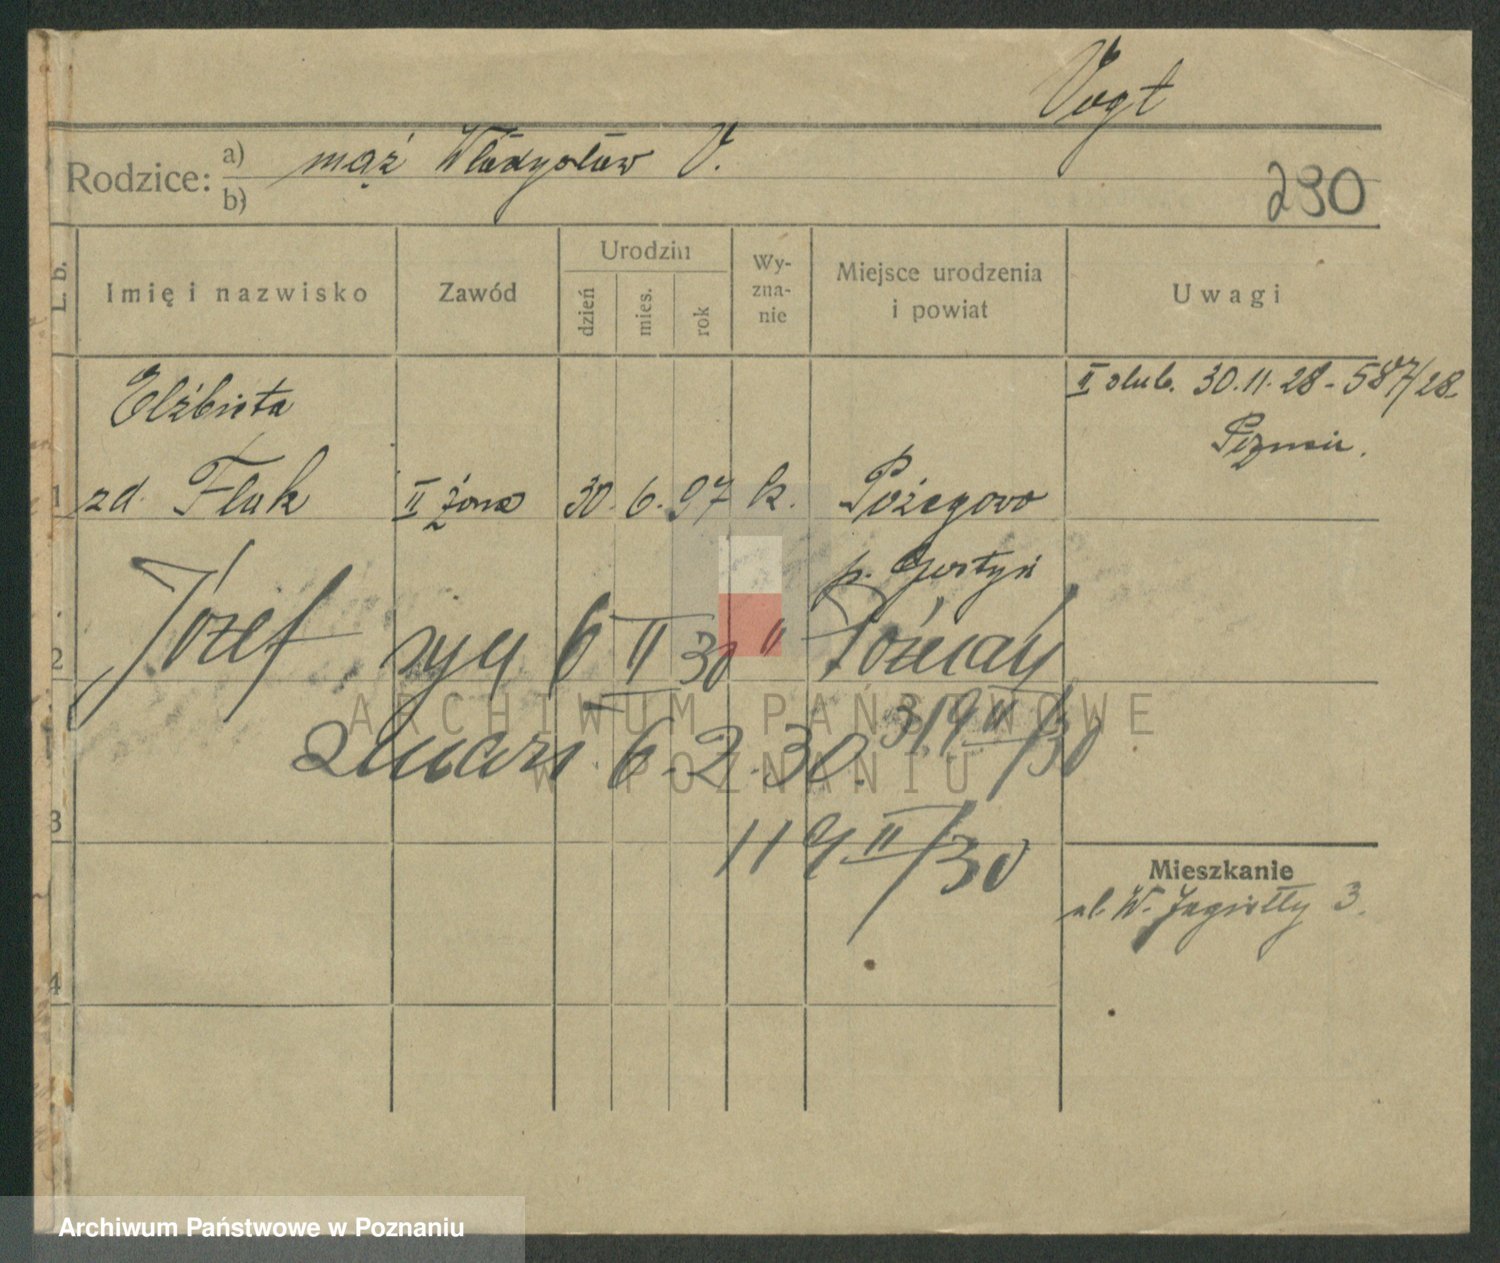 Vogt
Rodzice: a) mąż Władysław V.
b)
290
L. b.
Imię i nazwisko
Zawód
Urodzin
dzień
mies.
rok
Wy-
zna-
nie
Miejsce urodzenia
i powiat
Uwagi
Elżbieta
II slub. 30.11.28 - 587/28
Poznań.
1 zd. Flak II żona 30. 6. 97 k. Pożegowo
p. Gostyń
2 Józef syn 6 II 30 " Poznań
319 II/30
zmarł 6.2.30.
3
119 II/30
Mieszkanie
ul. W. Jagiełły 3.
4
ARCHIWUM PAŃSTWOWE
W POZNANIU
Archiwum Państwowe w Poznaniu